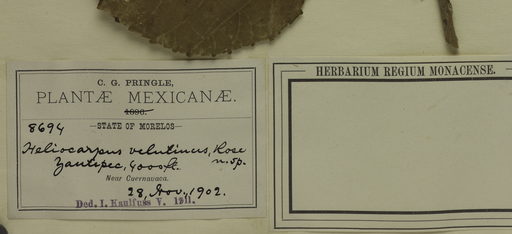 C. G. PRINGLE,
PLANTÆ MEXICANÆ.
1896.
8694
—STATE OF MORELOS—
Heliocarpus velutinus, Rose
n. sp.
Yautepec, 4000 ft.
Near Cuernavaca.
28, Nov., 1902.
Ded. I. Kaulfuss V. 1911.
HERBARIUM REGIUM MONACENSE.